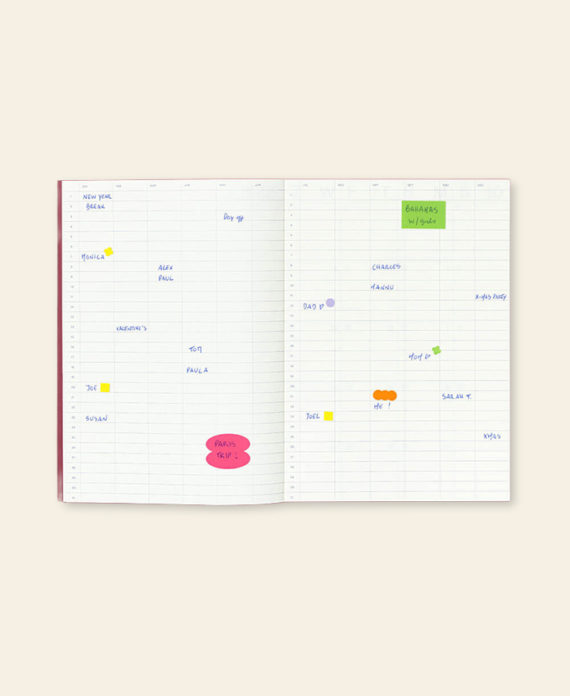 NEW YEAR
BREAK
Day off
MONICA
ALEX
PAUL
VALENTINE'S
TOM
PAULA
JOE
SUSAN
PARIS
TRIP !
BAHAMAS
w/
CHARLES
DAD
XMAS PARTY
MOM
ME !
SARAH T.
JOEL
XMAS